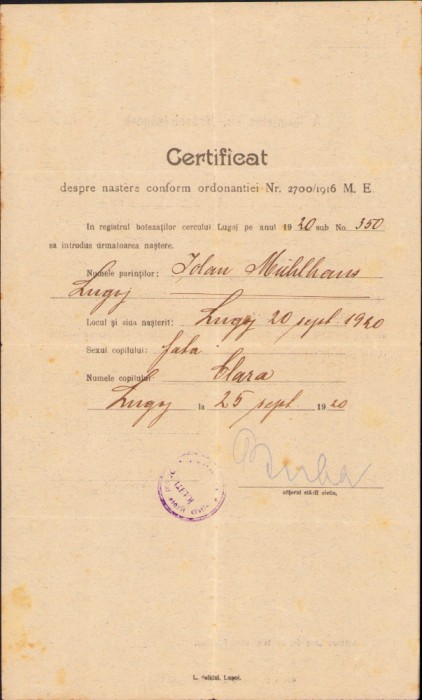 Certificat
despre nastere conform ordonantiei Nr. 2700/1916 M. E.
In registrul botezaților cercului Lugoj pe anul 1920 sub No. 350
sa introdus urmatoarea naștere.
Numele parinților: Iolan Mühlhans
Lugoj
Locul și ziua nașterii: Lugoj 20 sept. 1920
Sexul copitului: fata
Numele copitului Clara
Lugoj la 25 sept. 1920
L. Lugoj.